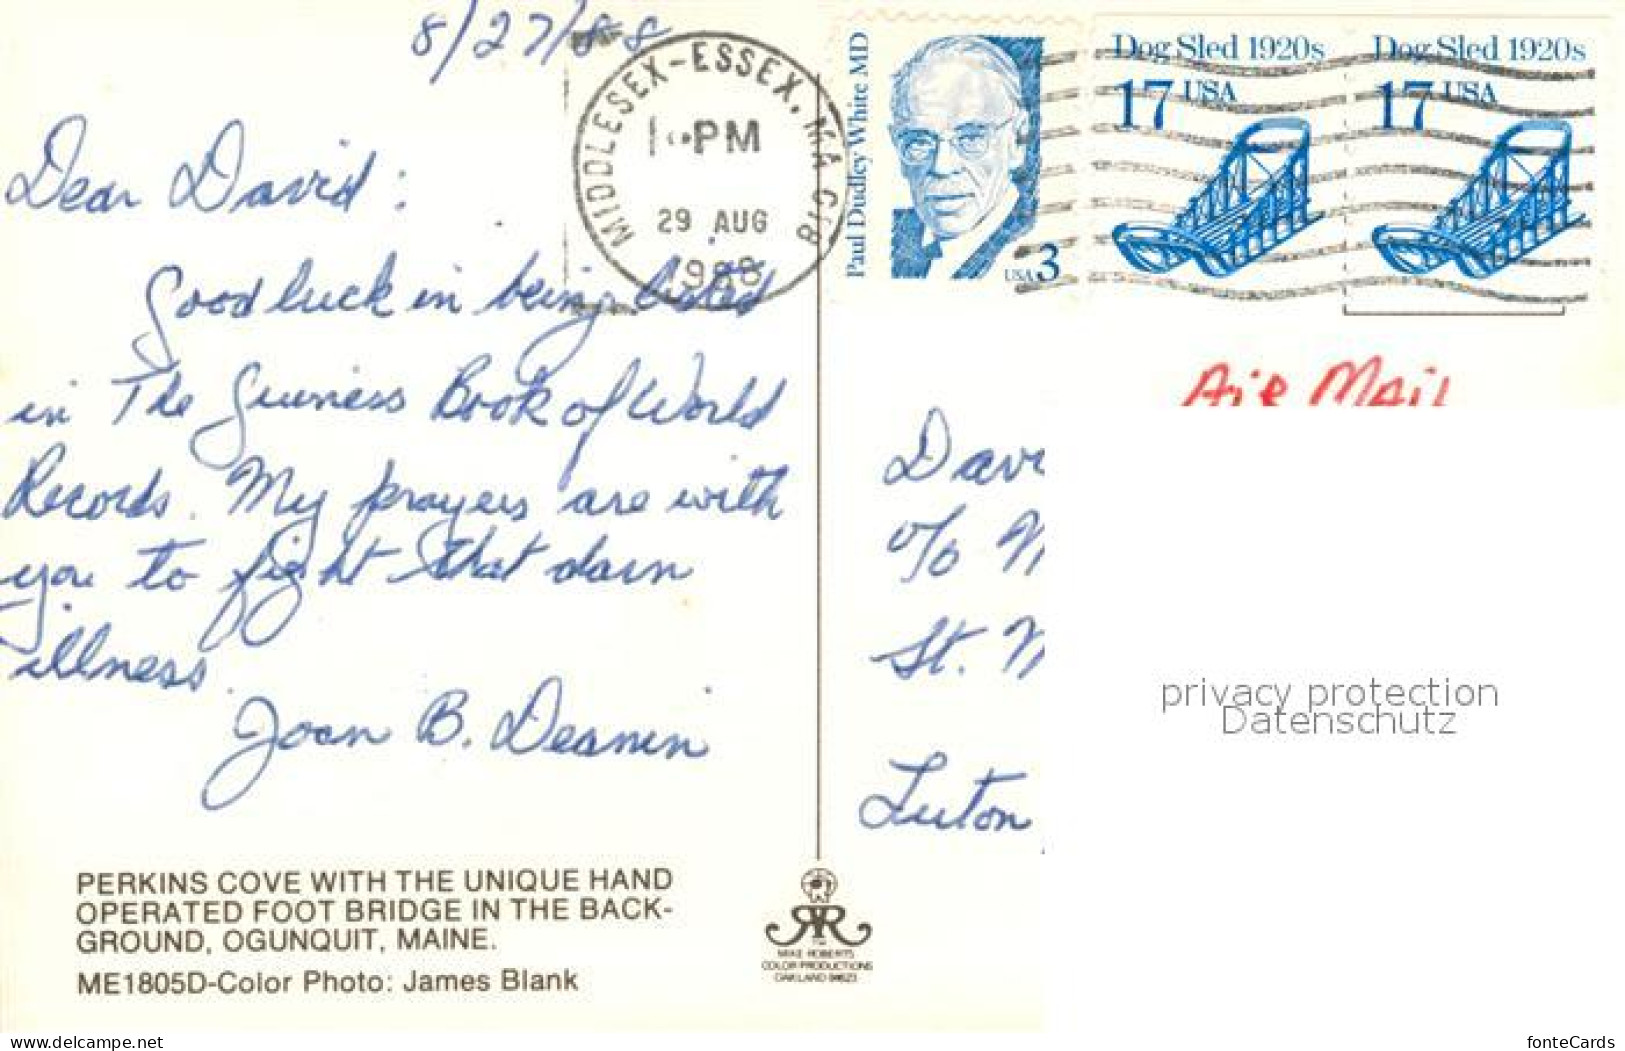 8/27/88
MIDDLESEX-ESSEX, MA
PM
29 AUG
1988
Paul Dudley White MD
USA 3
Dog Sled 1920s
17 USA
Dog Sled 1920s
17 USA
Air Mail
Dear David:
Good luck in being listed
in The Guiness Book of World
Records. My prayers are with
you to fight that darn
illness.
Joan B. Deanin
Davi
c/o M
St. M
Luton
privacy protection
Datenschutz
PERKINS COVE WITH THE UNIQUE HAND
OPERATED FOOT BRIDGE IN THE BACK-
GROUND, OGUNQUIT, MAINE.
ME1805D-Color Photo: James Blank
MIKE ROBERTS
COLOR PRODUCTIONS
OAKLAND 94623
www.ansichtskarten-center.de
fonteCards